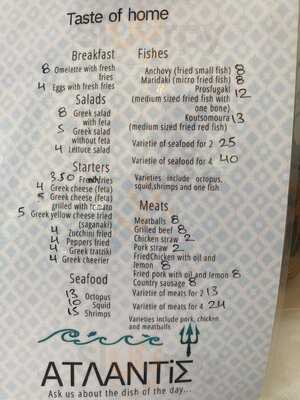 Taste of home
Breakfast
8 Omelette with fresh
fries
4 Eggs with fresh fries
Salads
8 Greek salad
with feta
5 Greek salad
without feta
4 Lettuce salad
Starters
3.50 French fries
4 Greek cheese (feta)
5 Greek cheese (feta)
grilled with tomato
5 Greek yellow cheese fried
(saganaki)
4 Zucchini fried
4 Peppers fried
4 Greek tratziki
4 Greek cheerier
Seafood
13 Octopus
10 Squid
15 Shrimps
Fishes
Anchovy (fried small fish) 8
Maridaki (micro fried fish) 8
Prosfugaki 12
(medium sized fried fish with
one bone)
Koutsomoura 13
(medium sized fried red fish)
Varietie of seafood for 2 25
Varietie of seafood for 4 40
Varieties include octopus,
squid,shrimps and one fish
Meats
Meatballs 8
Grilled beef 8
Chicken straw 2
Pork straw 2
FriedChicken with oil and
lemon 8
Fried pork with oil and lemon 8
Country sausage 8
Varietie of meats for 2 13
Varietie of meats for 4 24
Varieties include pork, chicken
and meatballs
ΑΤΛΑΝΤΙΣ
Ask us about the dish of the day...